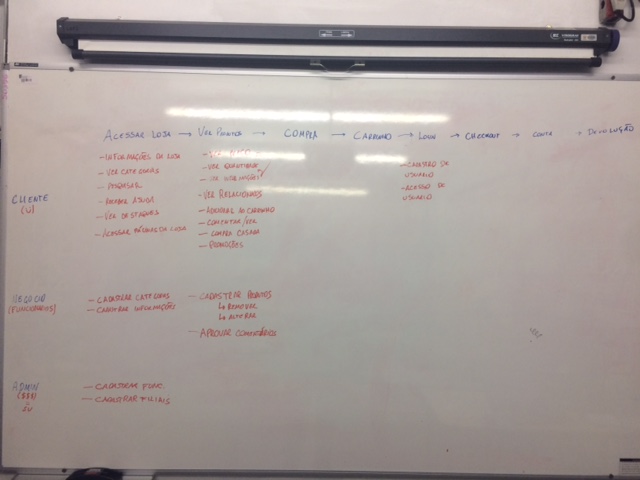 ACESSAR LOJA → VER PRODUTOS → COMPRA → CARRINHO → LOGIN → CHECKOUT → CONTA → DEVOLUÇÃO
CLIENTE
(U)
- INFORMAÇÕES DA LOJA
- VER CATEGORIAS
- PESQUISAR
- RECEBER AJUDA
- VER DESTAQUES
- ACESSAR PÁGINAS DA LOJA
- VER QUANTIDADE
- VER INFORMAÇÕES
- VER RELACIONADOS
- ADICIONAR AO CARRINHO
- COMENTAR/VER
- COMPRA CASADA
- PROMOÇÕES
- CADASTRO DE
USUARIO
- ACESSO DE
USUARIO
NEGOCIO
(FUNCIONÁRIOS)
- CADASTRAR CATEGORIAS
- CADASTRAR INFORMAÇÕES
- CADASTRAR PRODUTOS
↳ REMOVER
↳ ALTERAR
- APROVAR COMENTÁRIOS
ADMIN
($$$)
- CADASTRAR FUNC.
- CADASTRAR FILIAIS